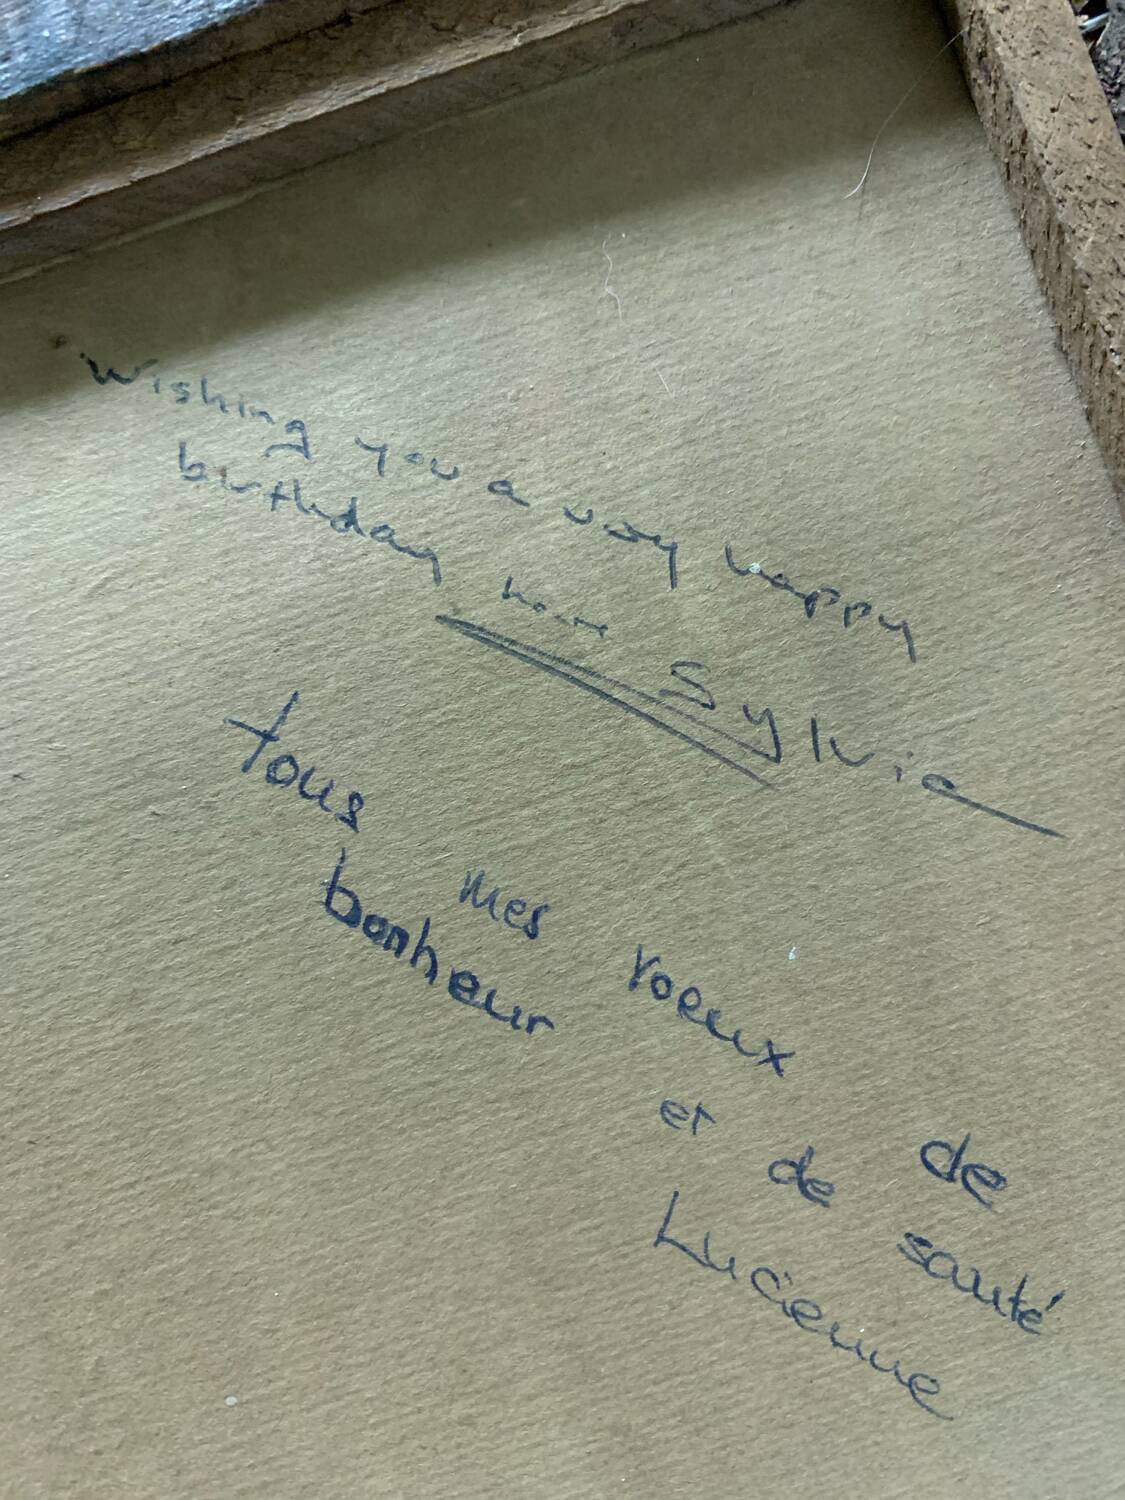 Wishing you a very happy
birthday
Sylvie
tous mes voeux de
bonheur et de santé
Lucienne